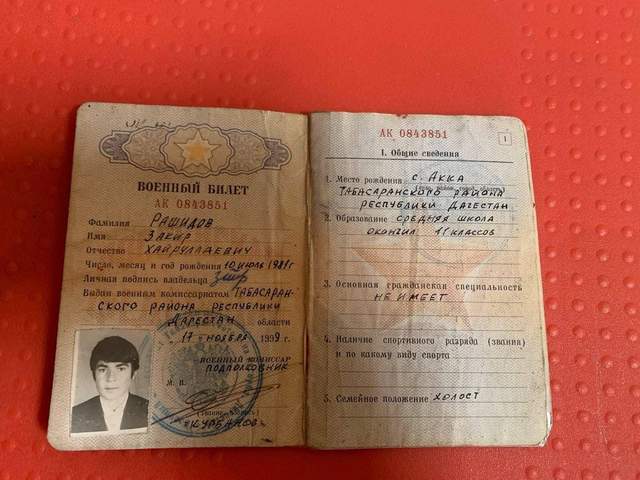 ВОЕННЫЙ БИЛЕТ
АК 0843851
Фамилия РАШИДОВ
Имя ЗАКИР
Отчество ХАЙРУЛЛАЕВИЧ
Число, месяц и год рождения 10 июль 1981г
Личная подпись владельца
Выдан военным комиссариатом ТАБАСАРАН-
СКОГО РАЙОНА РЕСПУБЛИКИ
ДАГЕСТАН области
17 НОЯБРЯ 1999 г.
ВОЕННЫЙ КОМИССАР
ПОДПОЛКОВНИК
М. П.
КУРБАНОВ
АК 0843851
1
I. Общие сведения
1. Место рождения с. АККА
ТАБАСАРАНСКОГО РАЙОНА
РЕСПУБЛИКИ ДАГЕСТАН
2. Образование СРЕДНЯЯ ШКОЛА
ОКОНЧИЛ 11 КЛАССОВ
3. Основная гражданская специальность
НЕ ИМЕЕТ
4. Наличие спортивного разряда (звания)
и по какому виду спорта
5. Семейное положение ХОЛОСТ